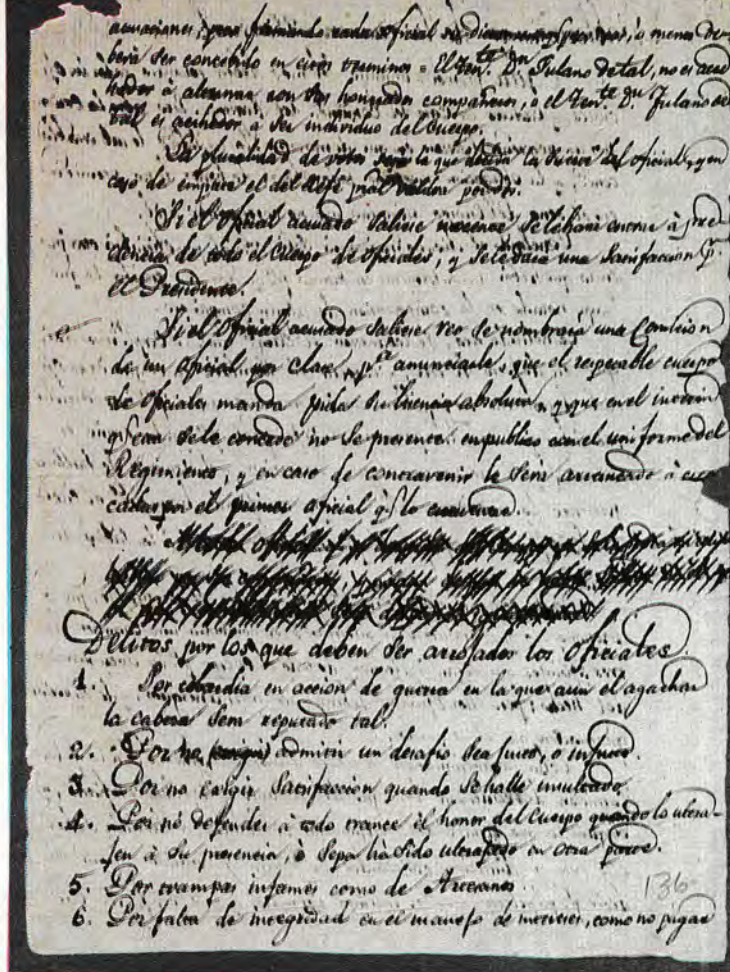 acuaciones, pero firmando cada oficial su
berá ser concebido en estos terminos = El Ten.te D.n Fulano de tal, no es acre
hedor à alternar con sus honrrados compañeros, o el Ten.te D.n Fulano de
tal es acrehedor à ser individuo del Cuerpo.
La pluralidad de votos será la que decida la suerte del oficial, y en
caso de empate el del Xefe pral valdrá por dos.
Si el Oficial acusado saliese inocente se le hará entrar à pre-
cencia de todo el Cuerpo de oficiales, y se le dará una Satisfaccion p.r
el Presidente.
Si el Oficial acusado saliese reo se nombrará una Comicion
de un oficial por clase, p.a anunciarle, que el respetable cuerpo
de Oficiales manda pida su licencia absoluta, y que en el interin
esta se le concede no se presente en publico con el uniforme del
Regimiento, y en caso de contravenir le será arrancado à esto
cadas por el primer oficial q.e lo encuentre.
Delitos por los que deben ser arrojados los Oficiales
1. Por cobardia en accion de guerra en la que aun el agachar
la cabeza será reputado tal.
2. Por no admitir un desafio sea justo, ò injusto.
3. Por no exigir Satisfaccion quando se halle insultado.
4. Por no defender à todo trance el honor del Cuerpo quando lo ultra-
jen à su presencia, ò sepa ha sido ultrajado en otra parte.
5. Por trampas infames como de Artesanos.
136
6. Por falta de integridad en el manejo de intereses, como no pagar